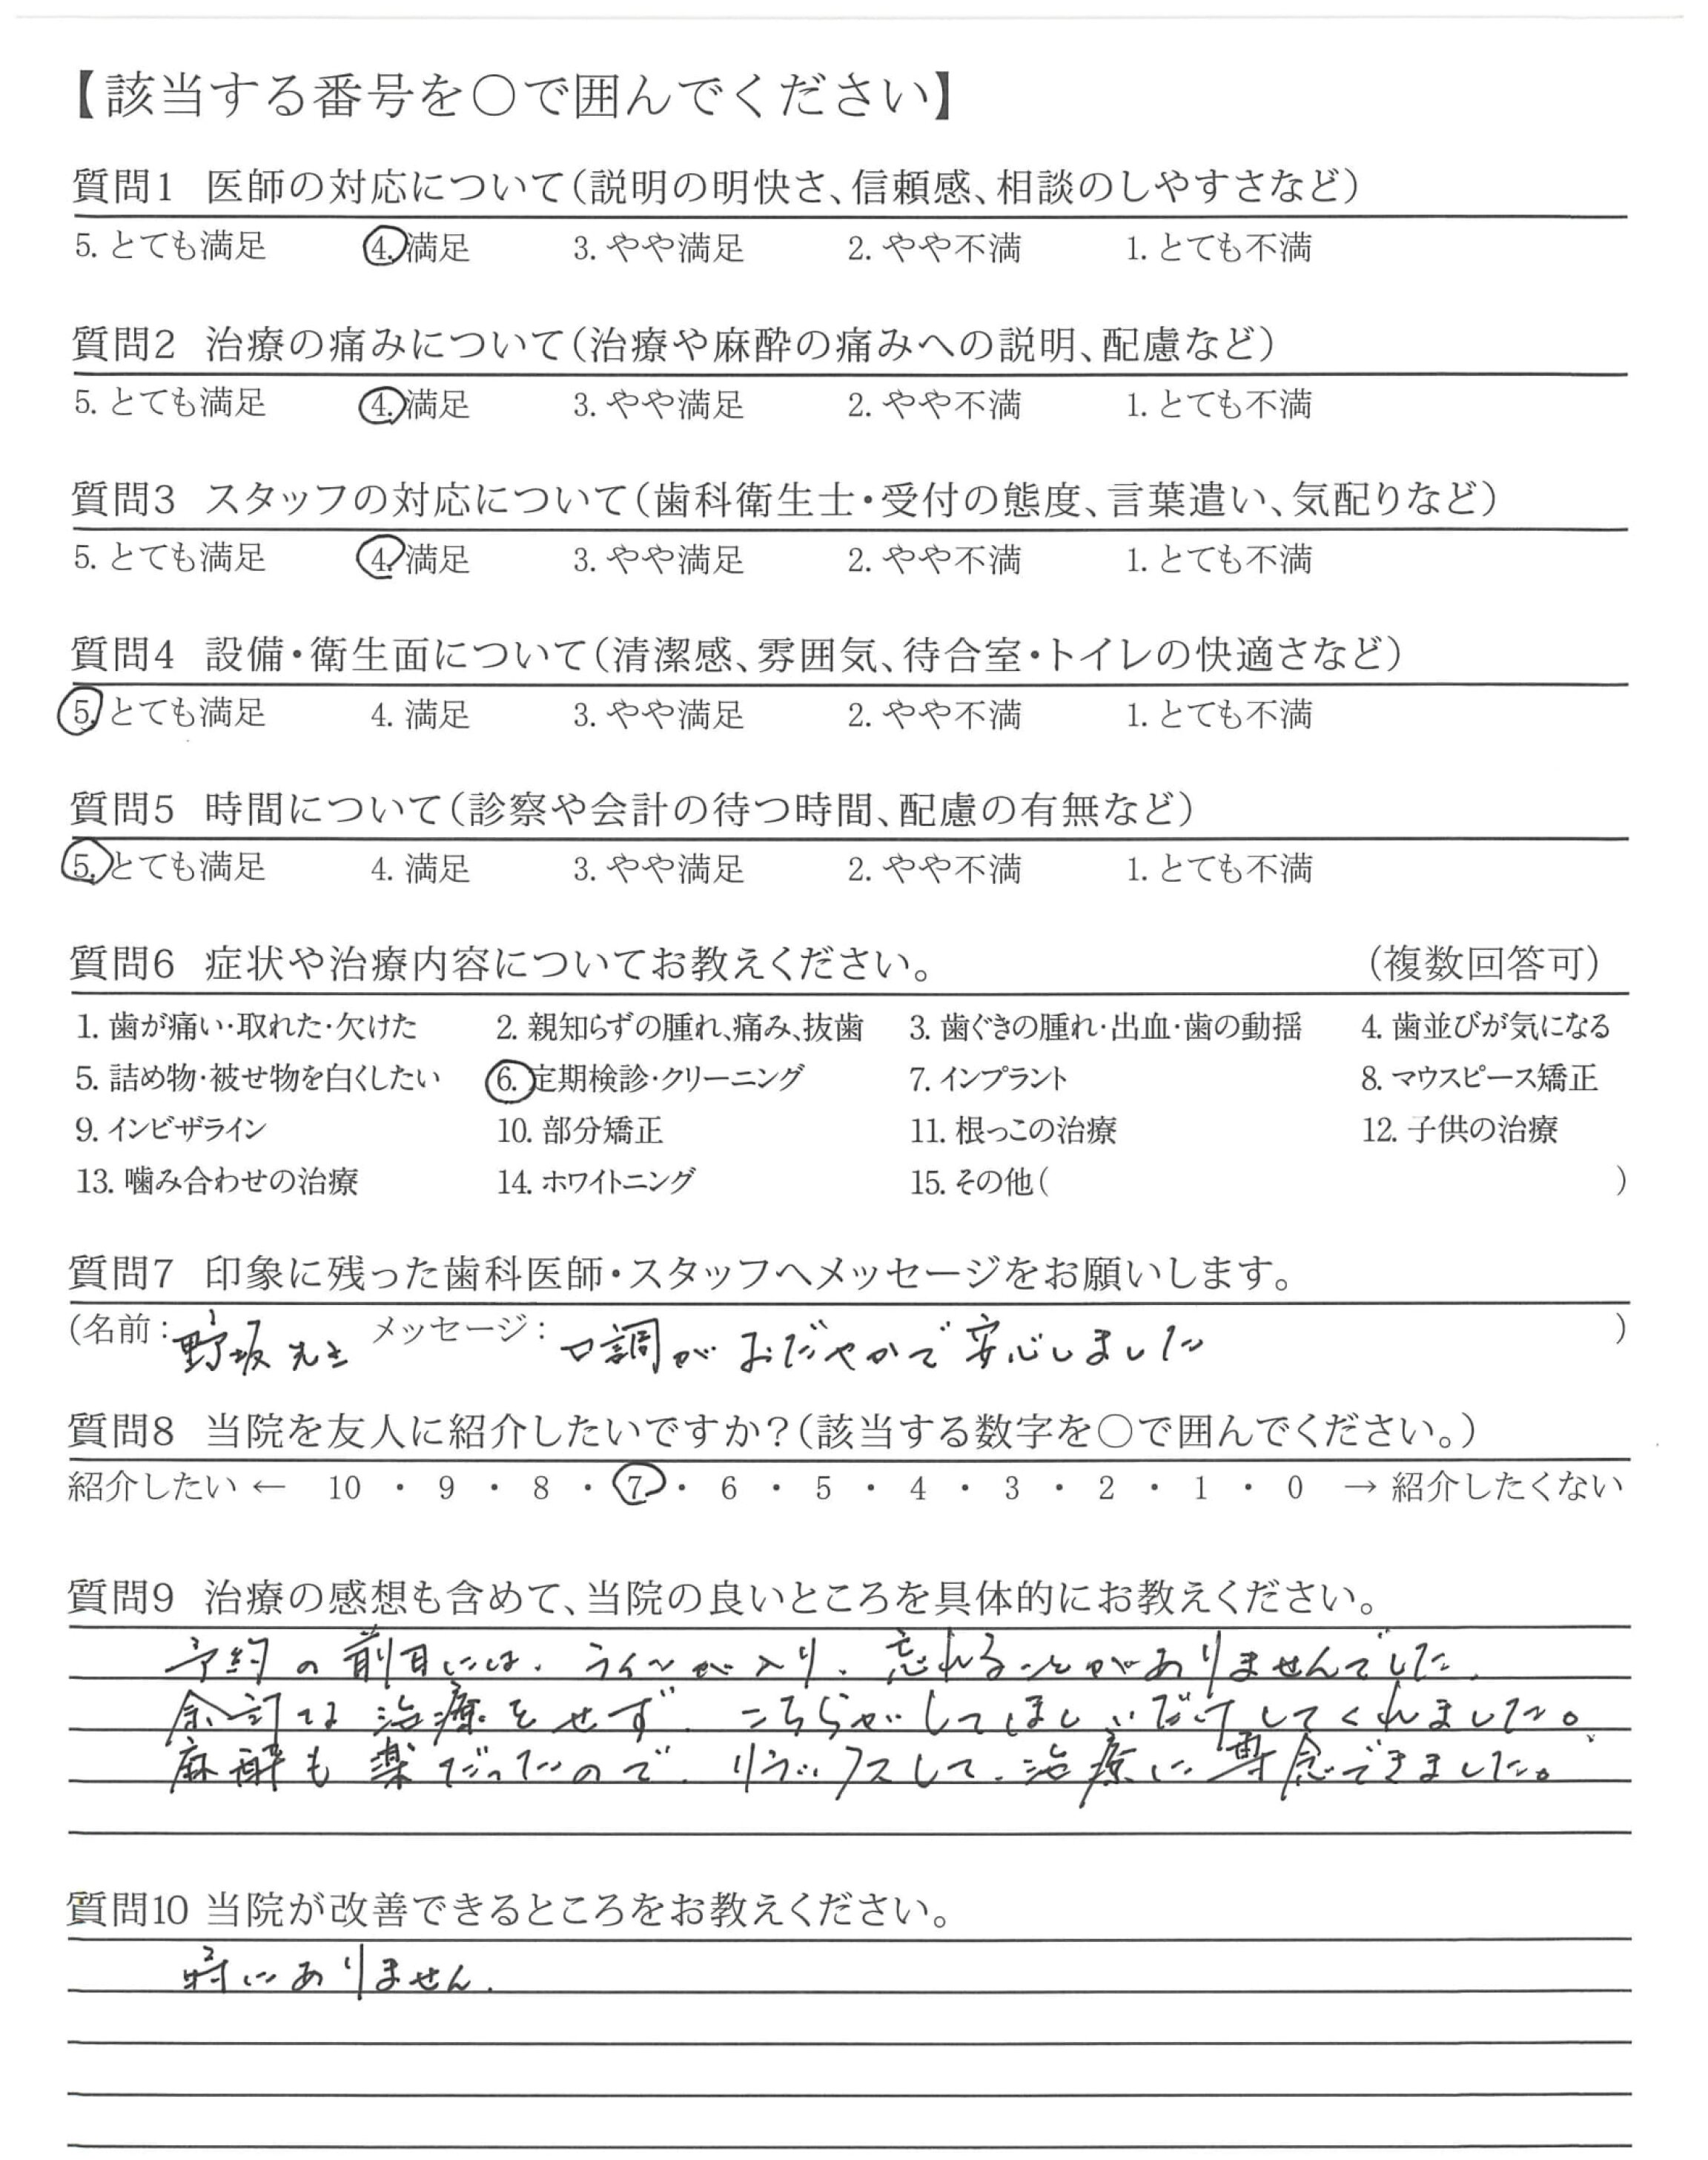 【該当する番号を○で囲んでください】
質問1 医師の対応について(説明の明快さ、信頼感、相談のしやすさなど)
5. とても満足 4. 満足 3. やや満足 2. やや不満 1. とても不満
質問2 治療の痛みについて(治療や麻酔の痛みへの説明、配慮など)
5. とても満足 4. 満足 3. やや満足 2. やや不満 1. とても不満
質問3 スタッフの対応について(歯科衛生士・受付の態度、言葉遣い、気配りなど)
5. とても満足 4. 満足 3. やや満足 2. やや不満 1. とても不満
質問4 設備・衛生面について(清潔感、雰囲気、待合室・トイレの快適さなど)
5. とても満足 4. 満足 3. やや満足 2. やや不満 1. とても不満
質問5 時間について(診察や会計の待つ時間、配慮の有無など)
5. とても満足 4. 満足 3. やや満足 2. やや不満 1. とても不満
質問6 症状や治療内容についてお教えください。 (複数回答可)
1. 歯が痛い・取れた・欠けた 2. 親知らずの腫れ、痛み、抜歯 3. 歯ぐきの腫れ・出血・歯の動揺 4. 歯並びが気になる
5. 詰め物・被せ物を白くしたい 6. 定期検診・クリーニング 7. インプラント 8. マウスピース矯正
9. インビザライン 10. 部分矯正 11. 根っこの治療 12. 子供の治療
13. 噛み合わせの治療 14. ホワイトニング 15. その他( )
質問7 印象に残った歯科医師・スタッフへメッセージをお願いします。
(名前: 野坂先生 メッセージ: 口調がおだやかで安心しました )
質問8 当院を友人に紹介したいですか?(該当する数字を○で囲んでください。)
紹介したい ← 10 ・ 9 ・ 8 ・ 7 ・ 6 ・ 5 ・ 4 ・ 3 ・ 2 ・ 1 ・ 0 → 紹介したくない
質問9 治療の感想も含めて、当院の良いところを具体的にお教えください。
予約の前日には、ラインが入り、忘れることがありませんでした。
余計な治療をせず、こちらがしてほしいだけしてくれました。
麻酔も楽だったので、リラックスして、治療に専念できました。
質問10 当院が改善できるところをお教えください。
特にありません。